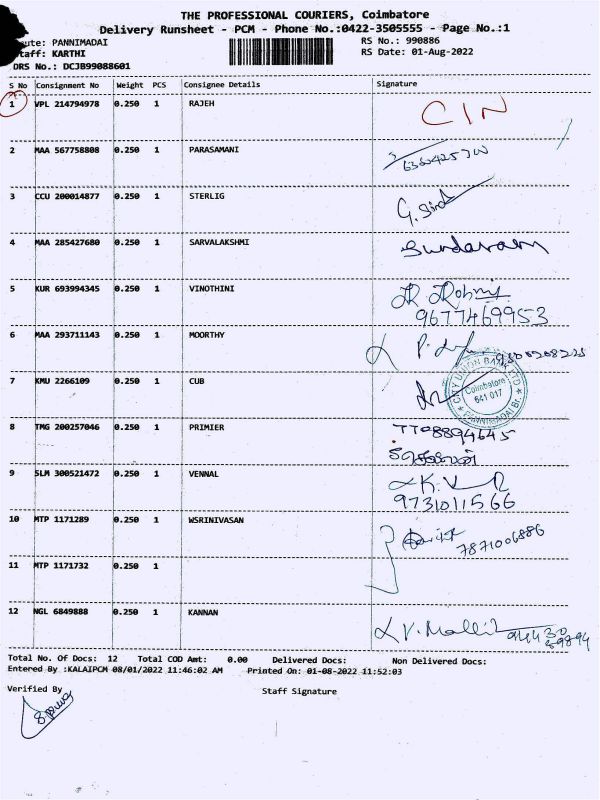 THE PROFESSIONAL COURIERS, Coimbatore
Delivery Runsheet - PCM - Phone No.:0422-3505555 - Page No.:1
PANNIMADAI RS No.: 990886
KARTHI RS Date: 01-Aug-2022
DRS No.: DCJB99088601
S No Consignment No Weight PCS Consignee Details Signature
1 VPL 214794978 0.250 1 RAJEH CIN
2 MAA 567758808 0.250 1 PARASAMANI
3 CCU 200014877 0.250 1 STERLIG
4 MAA 285427680 0.250 1 SARVALAKSHMI Sundaram
5 KUR 693994345 0.250 1 VINOTHINI
9677469953
6 MAA 293711143 0.250 1 MOORTHY
7 KMU 2266109 0.250 1 CUB
CITY UNION BANK LTD
Coimbatore
641 017
PANNIMADAI Br.
8 TMG 200257046 0.250 1 PRIMIER
9 SLM 300521472 0.250 1 VENNAL
9731011566
10 MTP 1171289 0.250 1 WSRINIVASAN
7871006886
11 MTP 1171732 0.250 1
12 NGL 6849888 0.250 1 KANNAN
Total No. Of Docs: 12 Total COD Amt: 0.00 Delivered Docs: Non Delivered Docs:
Entered By :KALAIPCM 08/01/2022 11:46:02 AM Printed On: 01-08-2022 11:52:03
Verified By Staff Signature